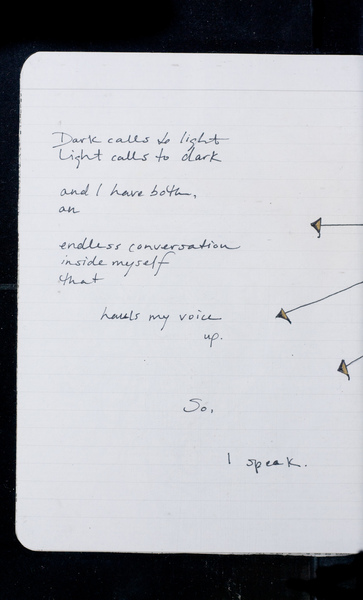 Dark calls to light
Light calls to dark
and I have both,
an
endless conversation
inside myself
that
hauls my voice
up.
So,
I speak.